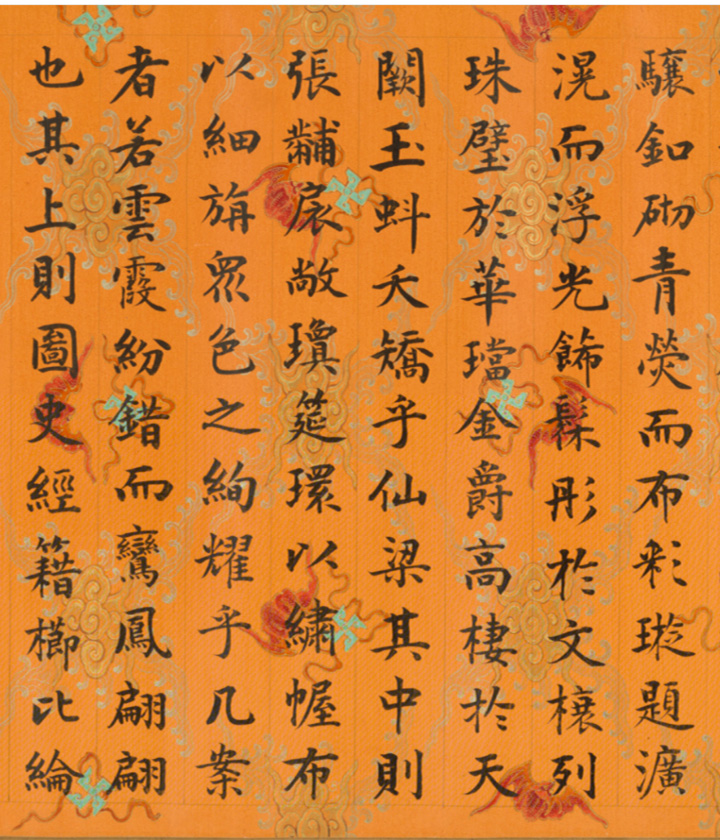 驤釦砌青熒而布彩璇題瀇
滉而浮光飾髹彤於文榱列
珠璧於華璫金爵高棲於天
闕玉蚪夭矯乎仙梁其中則
張黼扆敞瓊筵環以繡幄布
以細旃眾色之絢耀乎几案
者若雲霞紛錯而鸞鳳翩翩
也其上則圖史經籍櫛比綸